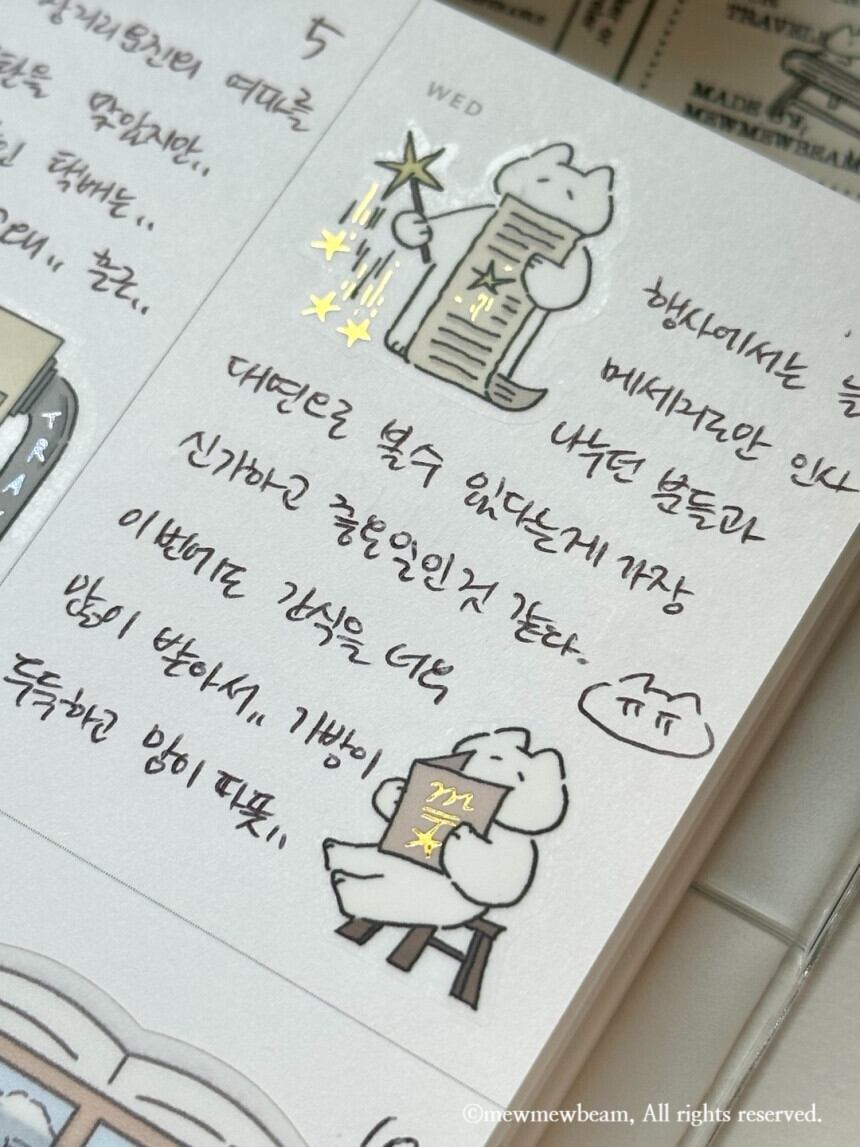 5
장거리운전의 여파를
맞았지만..
택배는..
WED
행사에서는 늘
메세지로만 인사
나누던 분들과
대면으로 볼수 있다는게 가장
신기하고 즐거운일인것 같다.
이번에도 간식을 너무
많이 받아서.. 가방이
두둑하고 맘이 따뜻..
ㅠㅠ
TRAVEL
MADE BY,
MEWMEWBEAM
©mewmewbeam, All rights reserved.